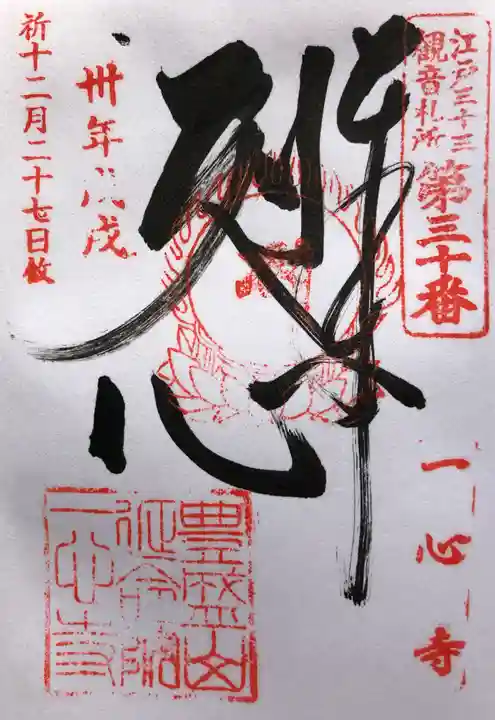 江戸三十三
観音札所
第三十番
一心寺
悲
卅年戊戌
祈十二月二十七日敬
豊盛山
延命院
一心寺